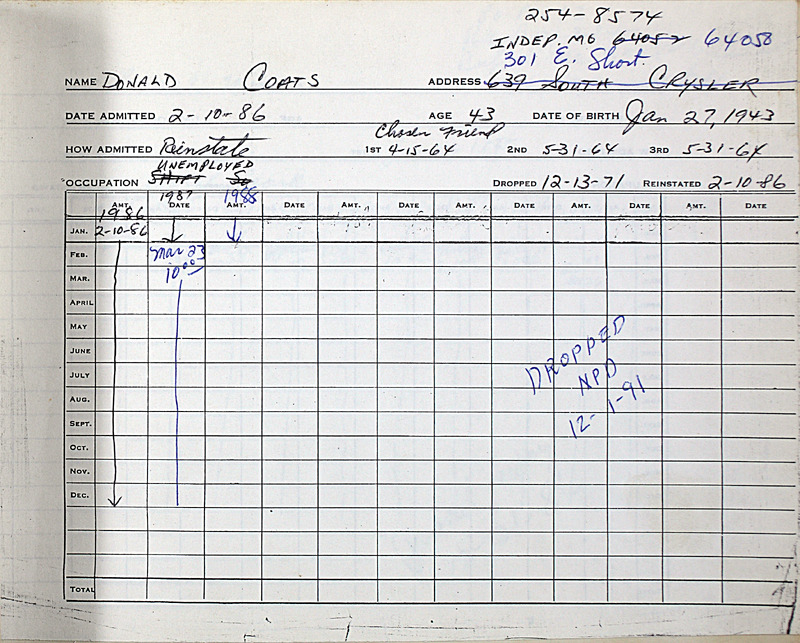 254-8574
INDEP. MO 64052 64050
301 E. Short.
NAME DONALD COATS ADDRESS 639 SOUTH CRYSLER
DATE ADMITTED 2-10-86 AGE 43 DATE OF BIRTH Jan 27, 1943
Chosen Friend
HOW ADMITTED Reinstate 1ST 4-15-64 2ND 5-31-64 3RD 5-31-64
UNEMPLOYED
OCCUPATION SHIFT DROPPED 12-13-71 REINSTATED 2-10-86
1987 1988
AMT. DATE AMT. DATE AMT. DATE AMT. DATE AMT. DATE AMT. DATE
1986
JAN. 2-10-86
FEB. Mar 23
10.00
MAR.
APRIL
MAY
JUNE
JULY
AUG.
SEPT.
OCT.
NOV.
DEC.
TOTAL
DROPPED
NPD
12-1-91